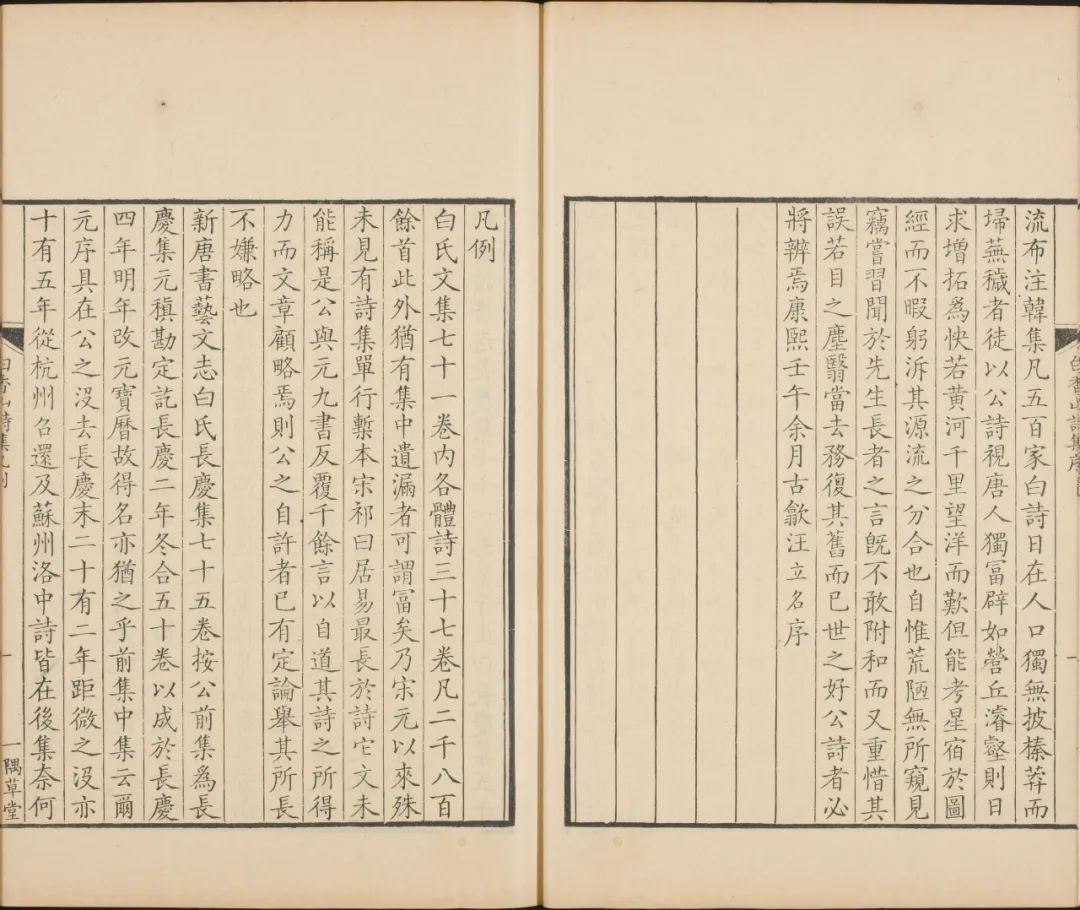 流布注韓集凡五百家白詩日在人口獨無披榛莽而
埽蕪穢者徒以公詩視唐人獨冨辟如營丘濬壑則日
求增拓爲快若黄河千里望洋而歎但能考星宿於圖
經而不暇躬泝其源流之分合也自惟荒陋無所窺見
竊嘗習聞於先生長者之言旣不敢附和而又重惜其
誤若目之塵翳當去務復其舊而已世之好公詩者必
將辨焉康熙壬午余月古歙汪立名序
凡例
白氏文集七十一卷内各體詩三十七卷凡二千八百
餘首此外猶有集中遺漏者可謂冨矣乃宋元以來殊
未見有詩集單行槧本宋祁曰居易最長於詩它文未
能稱是公與元九書反覆千餘言以自道其詩之所得
力而文章顧略焉則公之自許者已有定論舉其所長
不嫌略也
新唐書藝文志白氏長慶集七十五卷按公前集爲長
慶集元稹勘定訖長慶二年冬合五十卷以成於長慶
四年明年改元寶曆故得名亦猶之乎前集中集云爾
元序具在公之沒去長慶末二十有二年距微之沒亦
十有五年從杭州召還及蘇州洛中詩皆在後集奈何
白香山詩集凡例
一
一隅草堂